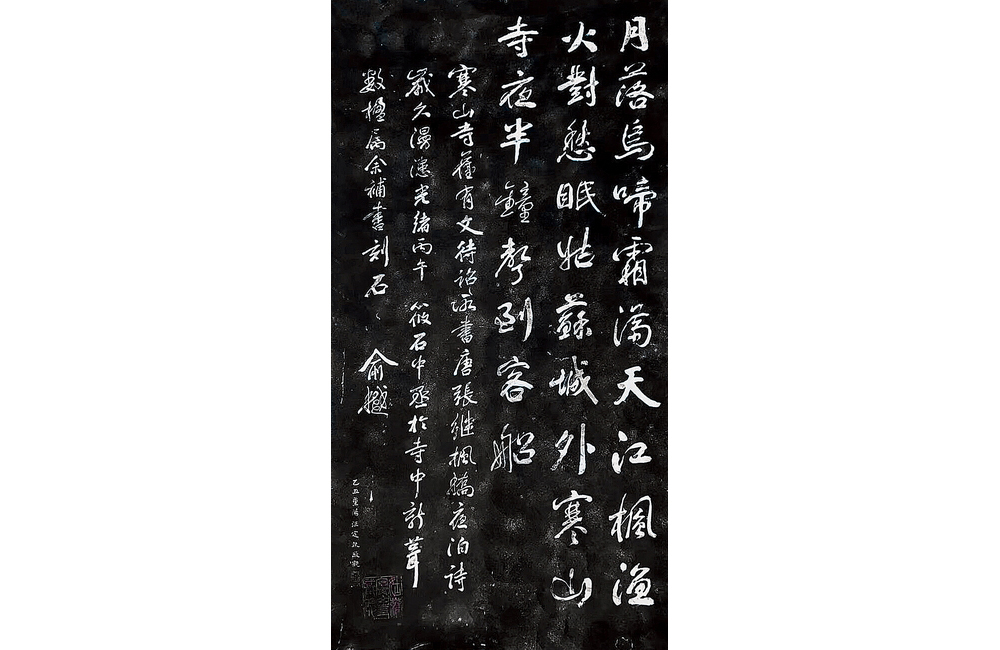 月落烏啼霜滿天江楓漁
火對愁眠姑蘇城外寒山
寺夜半鐘聲到客船
寒山寺舊有文待詔所書唐張繼楓橋夜泊詩
歲久漫漶光緒丙午 筱石中丞於寺中新葺
數楹属余補書刻石
俞樾